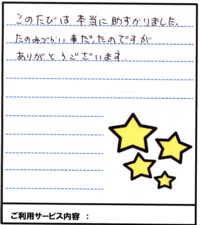 このたびは本当に助すかりました。
たのみづらい事だったのですが
ありがとうございます。
ご利用サービス内容 :